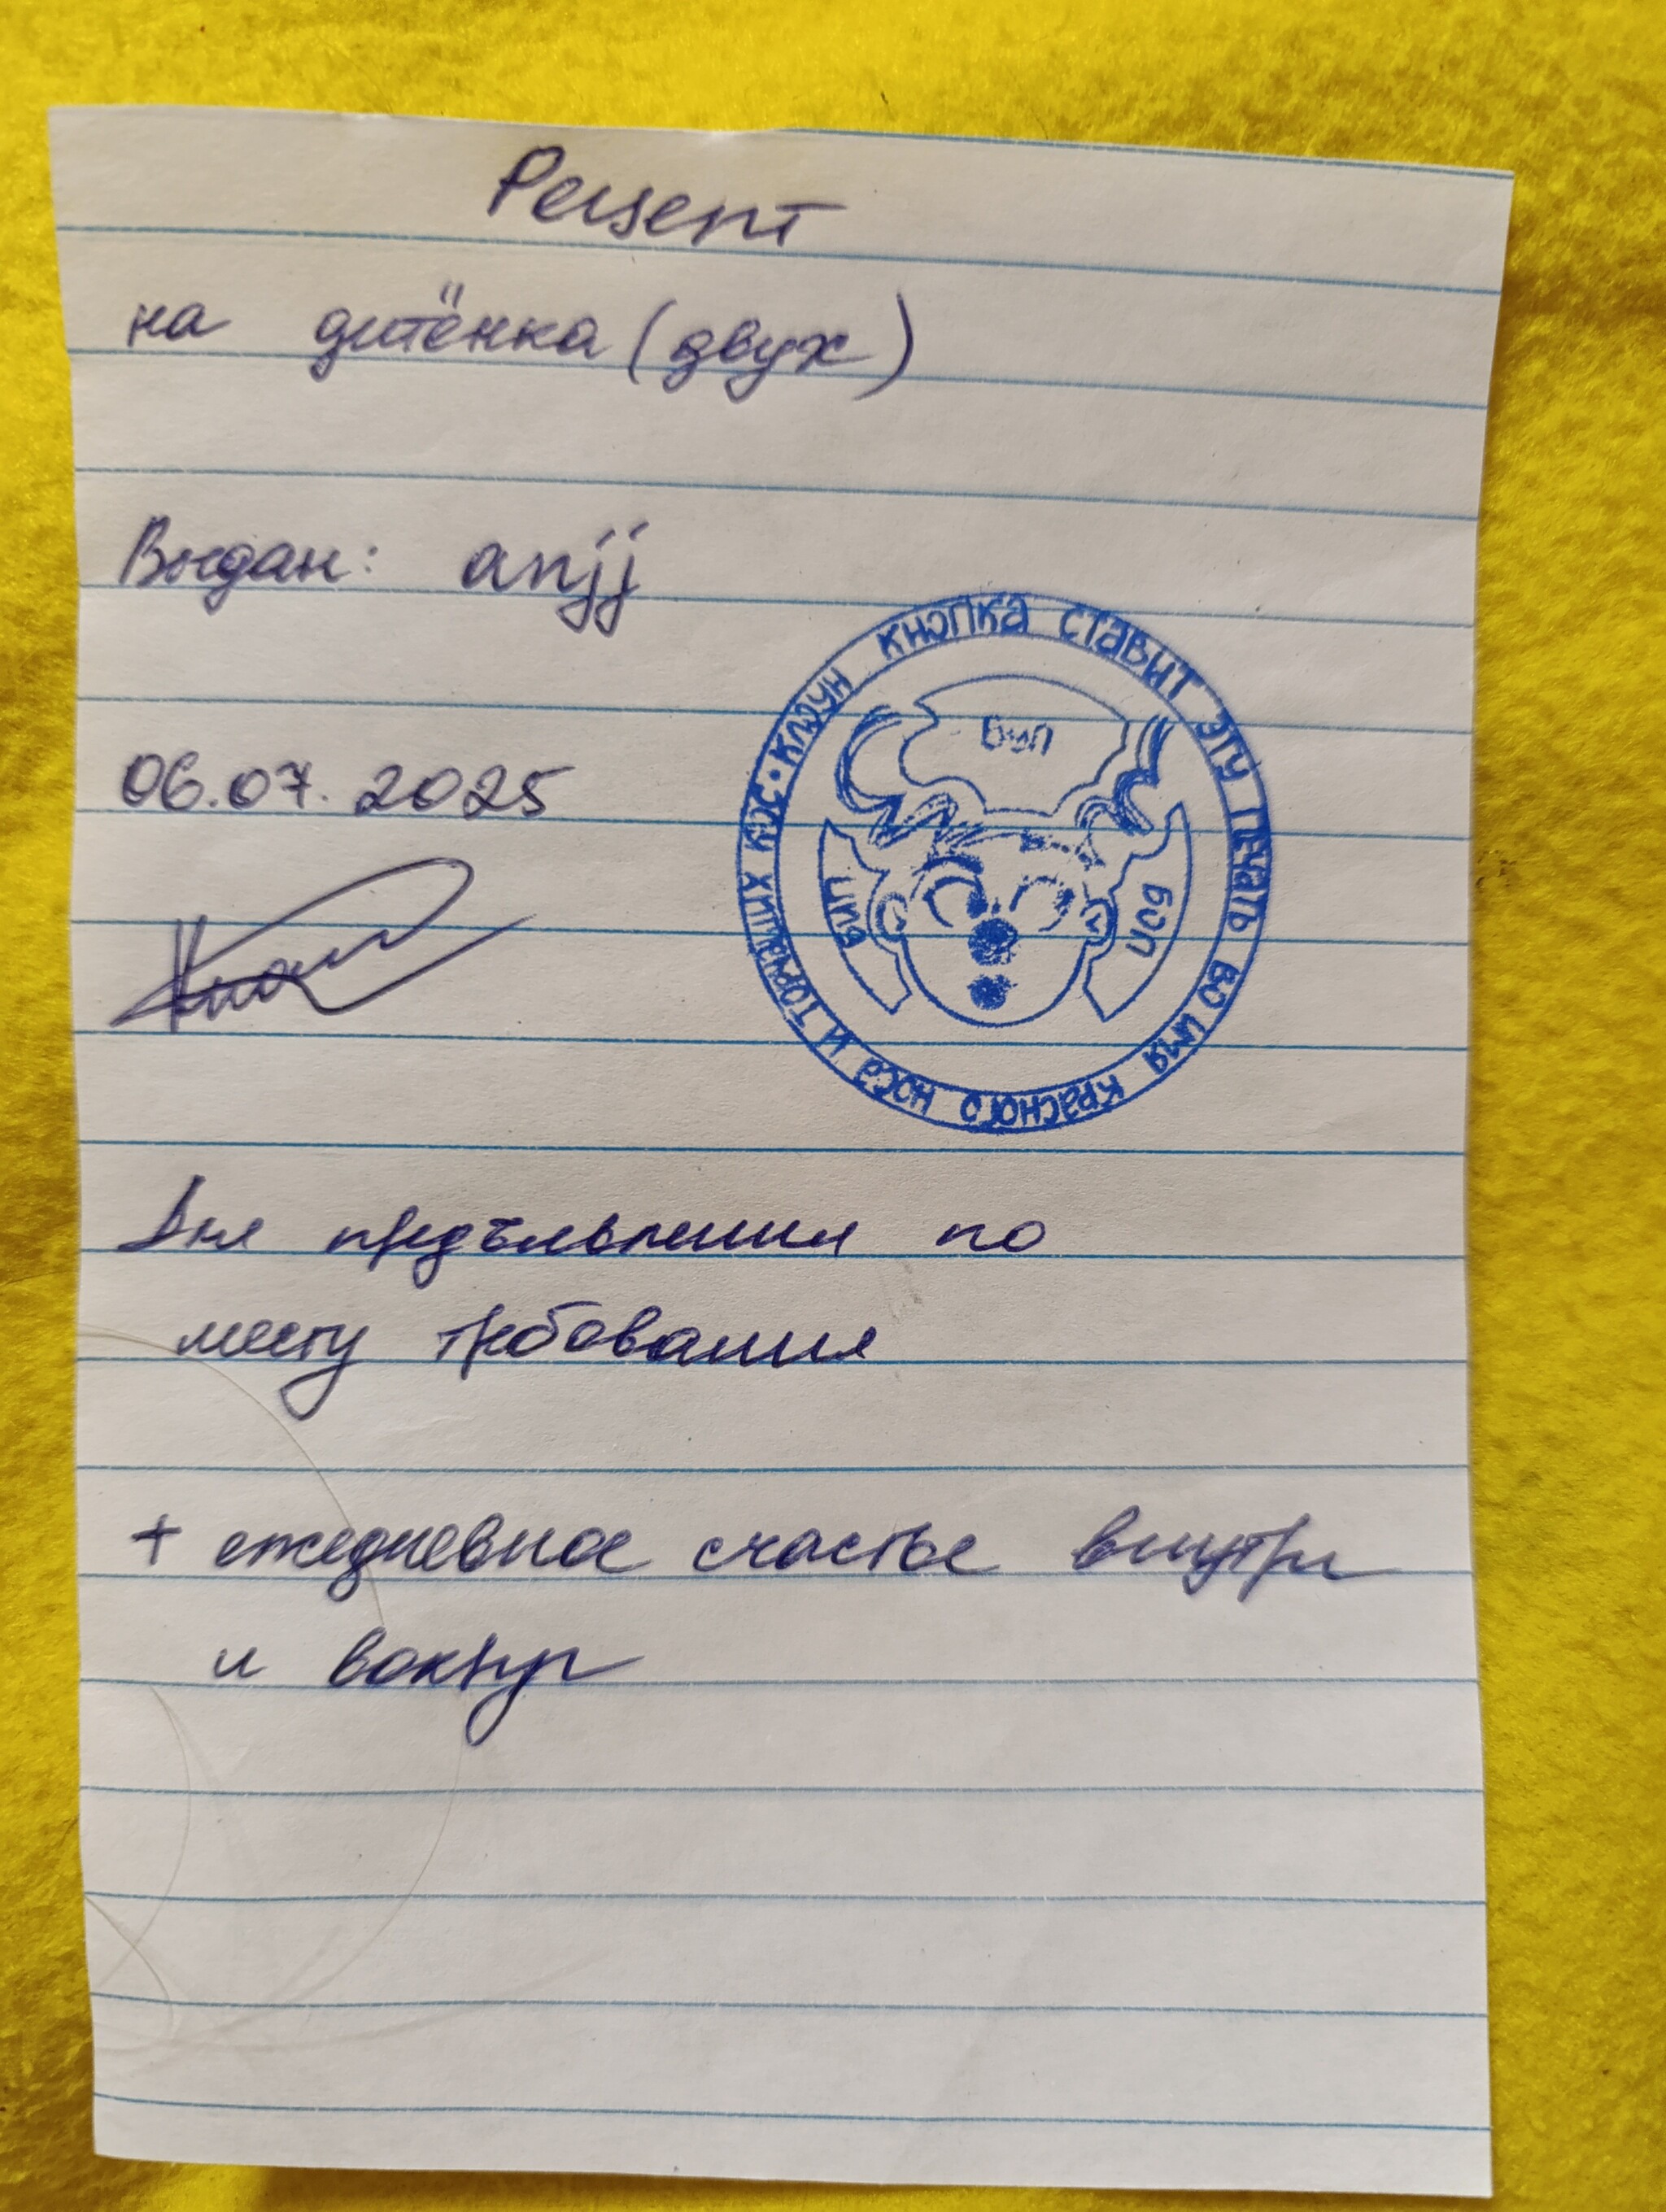 Рецепт
на дитёнка (двух)
Выдан: anjj
06.07.2025
КЛОУН КНОПКА СТАВИТ ЭТУ ПЕЧАТЬ ВО ИМЯ КРАСНОГО НОСА И ТОРЧАЩИХ КОС •
БИП
БУП
БОП
Для предъявления по
месту требования
+ ежедневное счастье внутри
и вокруг